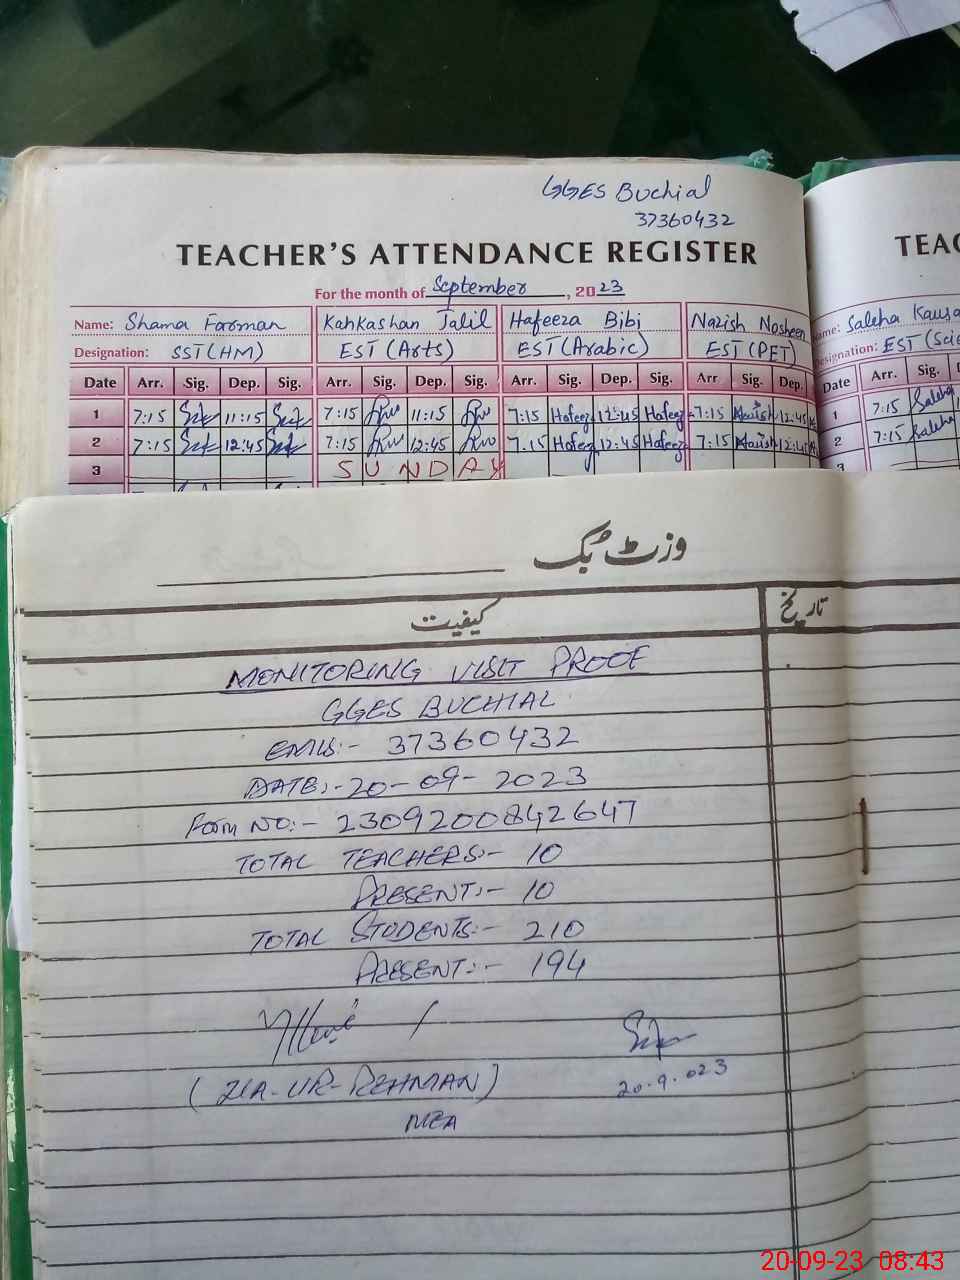 GGES Buchial
37360432
TEACHER'S ATTENDANCE REGISTER
For the month of September, 2023
Name: Shama Farman Kahkashan Jalil Hafeeza Bibi Nazish Nosheen
Designation: SST (HM) EST (Arts) EST (Arabic) EST (PET)
Date Arr. Sig. Dep. Sig. Arr. Sig. Dep. Sig. Arr. Sig. Dep. Sig. Arr Sig. Dep.
1 7:15 11:15 7:15 11:15 7:15 Hafeez 12:45 Hafeez 7:15 12:45
2 7:15 12:45 7:15 12:45 7.15 Hafeez 12:45 Hafeez 7:15 12:45
3 SUNDAY
TEAC
Name: Saleha Kausa
Designation: EST (Scie
Date Arr. Sig.
1 7:15 Saleha
2 7:15 Saleha
3
وزٹ بک
کیفیت تاریخ
MONITORING VISIT PROOF
GGES BUCHIAL
EMIS:- 37360432
DATE:- 20-09-2023
Form NO:- 2309200842647
TOTAL TEACHERS:- 10
PRESENT:- 10
TOTAL STUDENTS:- 210
PRESENT:- 194
20.9.023
(ZIA-UR-REHMAN)
MEA
20-09-23 08:43